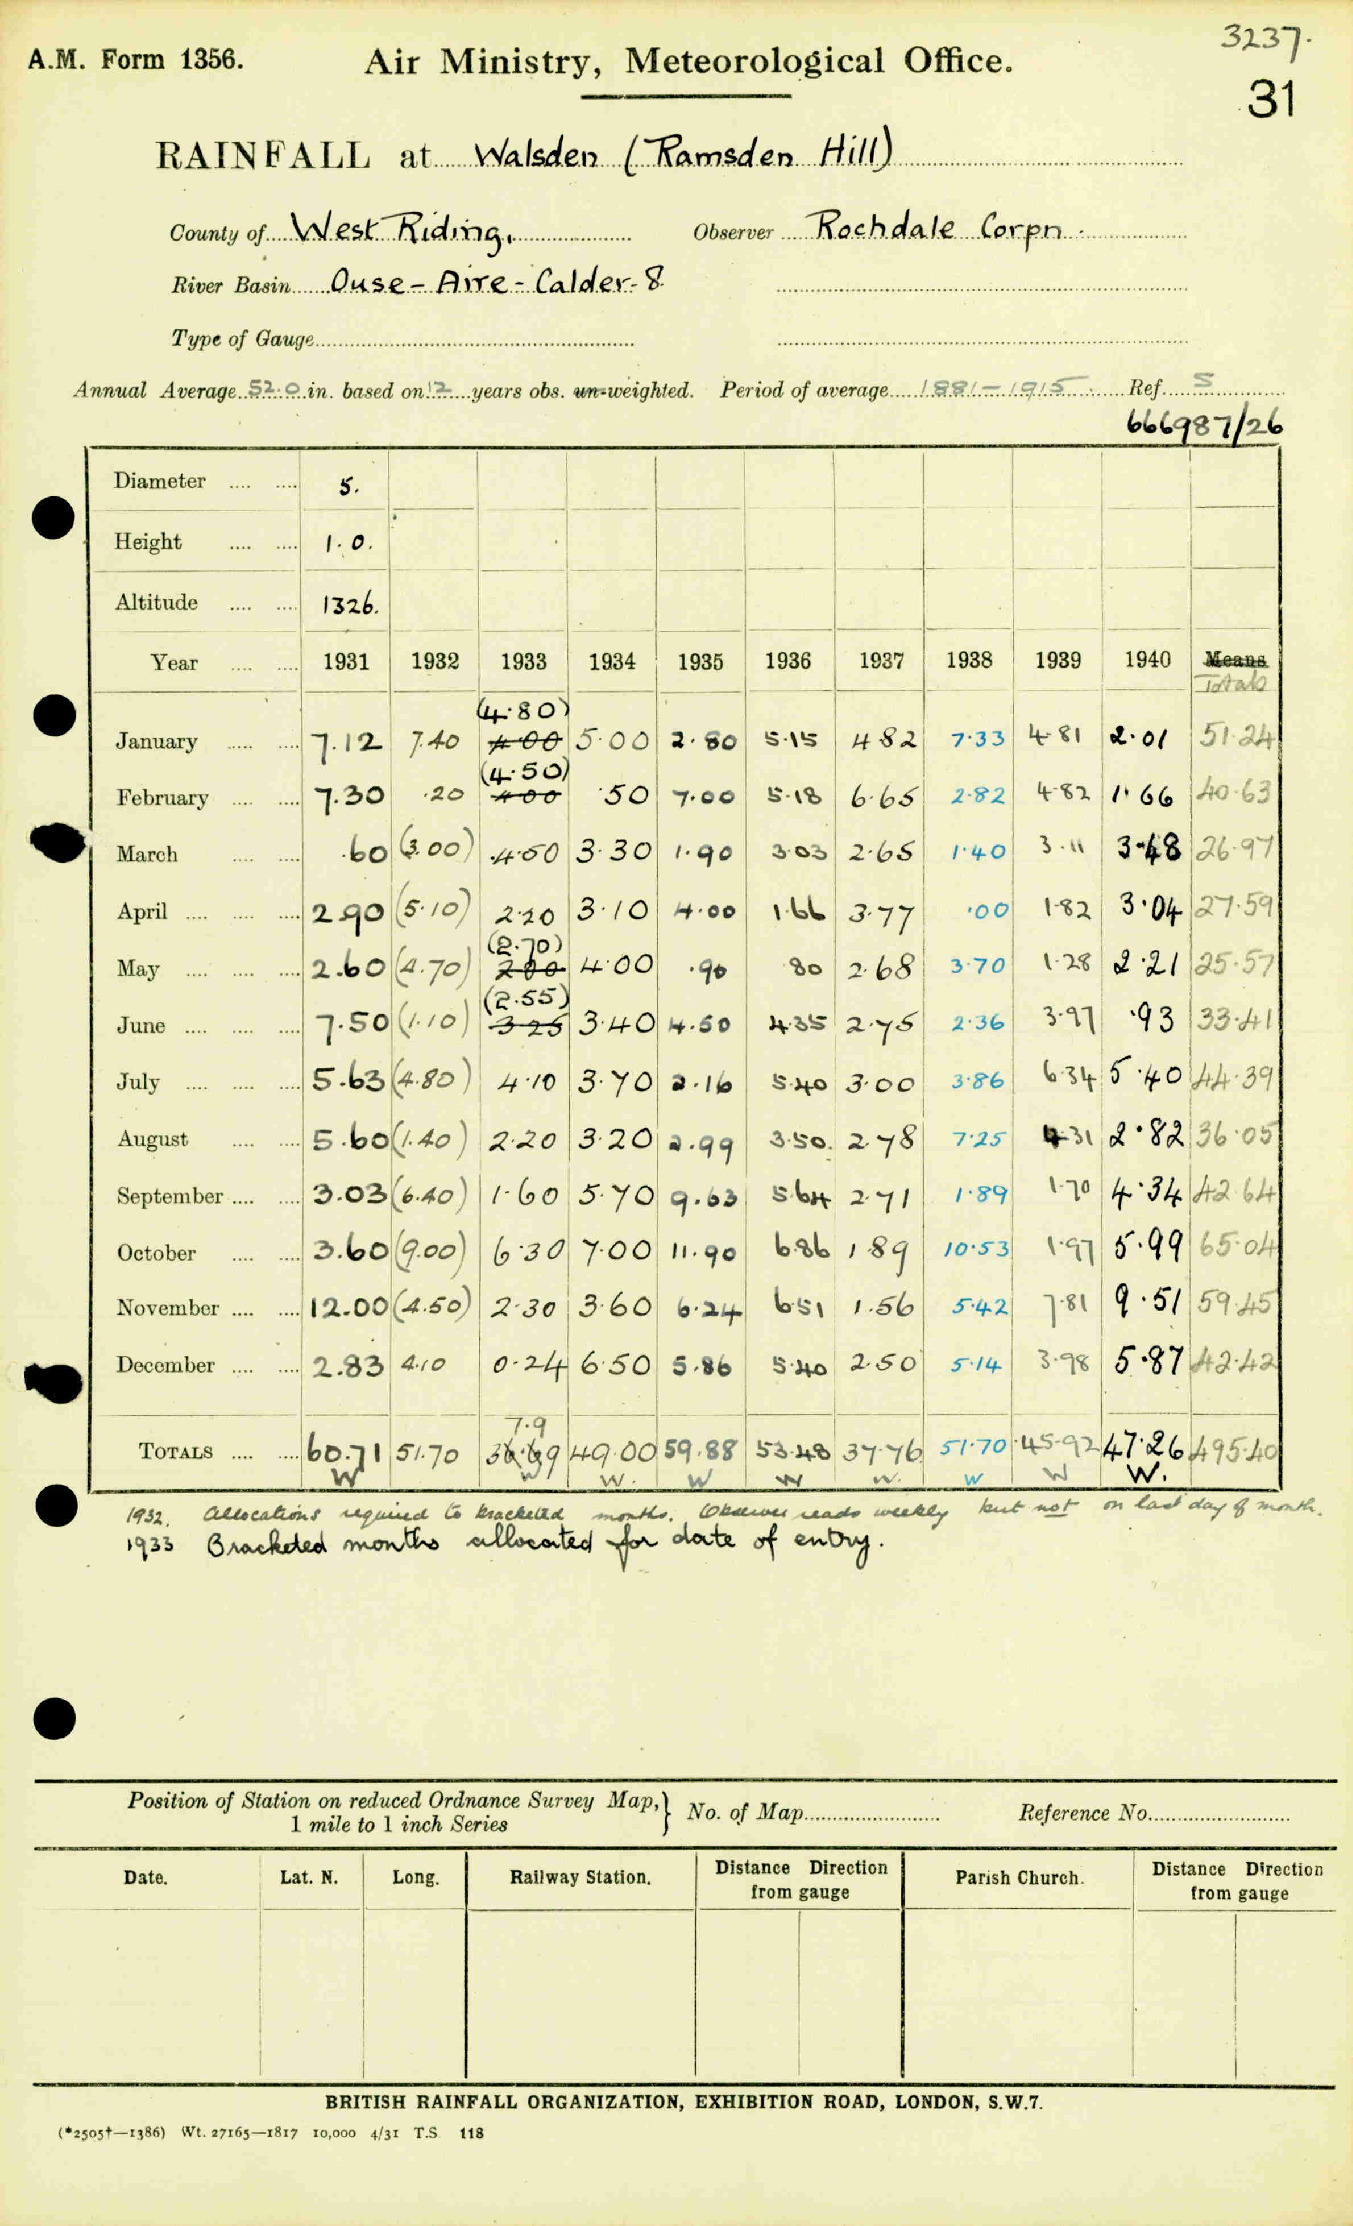 3237.
A.M. Form 1356. Air Ministry, Meteorological Office.
31
RAINFALL at Walsden (Ramsden Hill)
County of West Riding. Observer Rochdale Corpn.
River Basin Ouse - Aire - Calder - 8
Type of Gauge
Annual Average 52.0 in. based on 12 years obs. un-weighted. Period of average 1881-1915. Ref. S
666987/26
Diameter 5.
Height 1.0.
Altitude 1326.
Year 1931 1932 1933 1934 1935 1936 1937 1938 1939 1940 Means
Totals
(4.80)
January 7.12 7.40 4.00 5.00 2.80 5.15 4.82 7.33 4.81 2.01 51.24
(4.50)
February 7.30 .20 4.00 .50 7.00 5.18 6.65 2.82 4.82 1.66 40.63
March .60 (3.00) 4.50 3.30 1.90 3.03 2.65 1.40 3.11 3.48 26.97
April 2.90 (5.10) 2.20 3.10 4.00 1.66 3.77 .00 1.82 3.04 27.59
(2.70)
May 2.60 (4.70) 2.80 4.00 .90 .80 2.68 3.70 1.28 2.21 25.57
(2.55)
June 7.50 (1.10) 3.25 3.40 4.50 4.35 2.75 2.36 3.97 .93 33.41
July 5.63 (4.80) 4.10 3.70 2.16 5.40 3.00 3.86 6.34 5.40 44.39
August 5.60 (1.40) 2.20 3.20 2.99 3.50 2.78 7.25 4.31 2.82 36.05
September 3.03 (6.40) 1.60 5.70 9.63 5.64 2.71 1.89 1.70 4.34 42.64
October 3.60 (9.00) 6.30 7.00 11.90 6.86 1.89 10.53 1.97 5.99 65.04
November 12.00 (4.50) 2.30 3.60 6.24 6.51 1.56 5.42 7.81 9.51 59.45
December 2.83 4.10 0.24 6.50 5.86 5.40 2.50 5.14 3.98 5.87 42.42
7.9
TOTALS 60.71 51.70 49.00 59.88 53.48 37.76 51.70 45.92 47.26 495.40
W W W. W W W. W W W.
1932. Allocations required to bracketed months. Observer reads weekly but not on last day of month.
1933 Bracketed months allocated for date of entry.
Position of Station on reduced Ordnance Survey Map,} No. of Map Reference No.
1 mile to 1 inch Series
Date. Lat. N. Long. Railway Station. Distance Direction Parish Church. Distance Direction
from gauge from gauge
BRITISH RAINFALL ORGANIZATION, EXHIBITION ROAD, LONDON, S.W.7.
(*2505†—1386) Wt. 27165—1817 10,000 4/31 T.S. 118